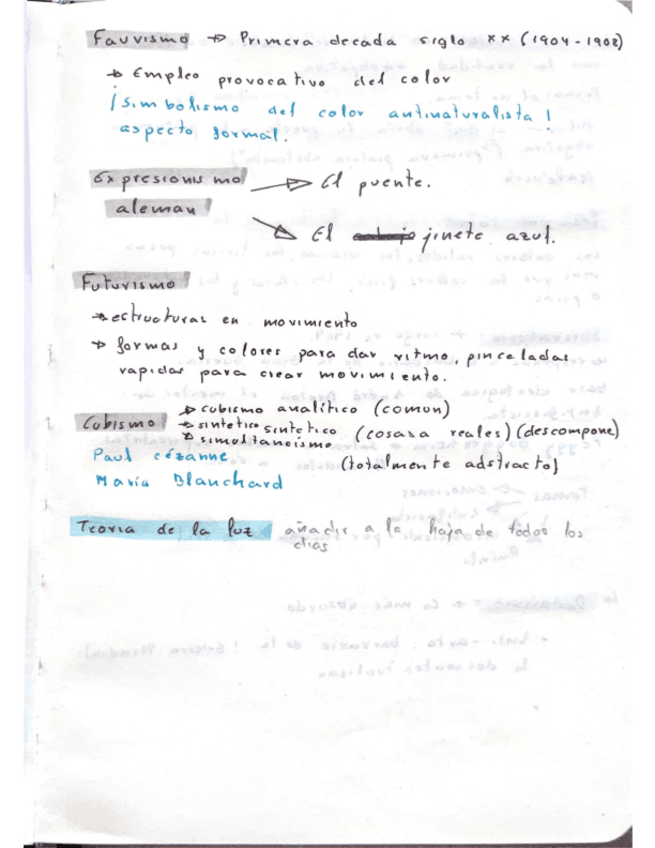 Fauvismo → Primera decada siglo XX (1904-1902)
→ Empleo provocativo del color
¡simbolismo del color antinaturalista!
aspecto formal.
Expresionismo → El puente.
aleman
→ El jinete azul.
Futurismo
→ estructuras en movimiento
→ formas y colores para dar ritmo, pinceladas
rapidas para crear movimiento.
Cubismo → cubismo analítico (comun)
→ sintetico sintetico (cosasa reales) (descompone)
→ simultaneismo
Paul cézanne (totalmente adstracto)
María Blanchard
Teoria de la luz añadir a la hoja de todos los
dias